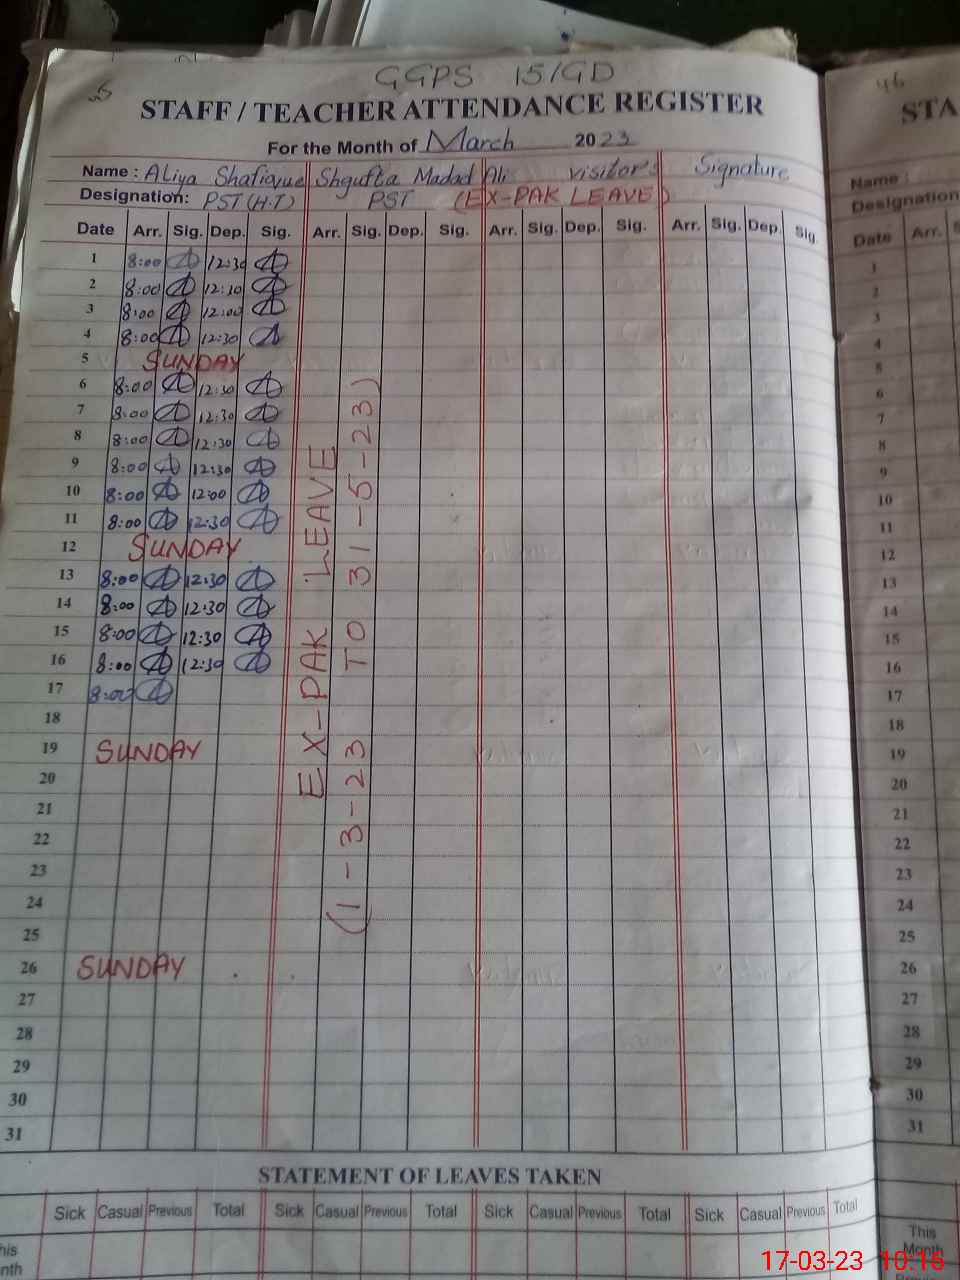 GGPS 15/GD
STAFF / TEACHER ATTENDANCE REGISTER
For the Month of March 2023
Name : Aliya Shafique Shgufta Madad Ali visitor's Signature
Designation: PST (H.T) PST (EX-PAK LEAVE)
Date Arr. Sig. Dep. Sig. Arr. Sig. Dep. Sig. Arr. Sig. Dep. Sig. Arr. Sig. Dep. Sig.
1 8:00 12:30
2 8:00 12:30
3 8:00 12:00
4 8:00 12:30
5 SUNDAY
6 8:00 12:30
7 8:00 12:30
8 8:00 12:30
9 8:00 12:30
10 8:00 12:00
11 8:00 12:30
12 SUNDAY
13 8:00 12:30
14 8:00 12:30
15 8:00 12:30
16 8:00 12:30
17 8:00
18
19 SUNDAY
20
21
22
23
24
25
26 SUNDAY
27
28
29
30
31
EX-PAK LEAVE
(1-3-23 TO 31-5-23)
STATEMENT OF LEAVES TAKEN
Sick Casual Previous Total Sick Casual Previous Total Sick Casual Previous Total Sick Casual Previous Total
46
STA
Name :
Designation
Date Arr.
1
2
3
4
5
6
7
8
9
10
11
12
13
14
15
16
17
18
19
20
21
22
23
24
25
26
27
28
29
30
31
This
Month
17-03-23 10:16